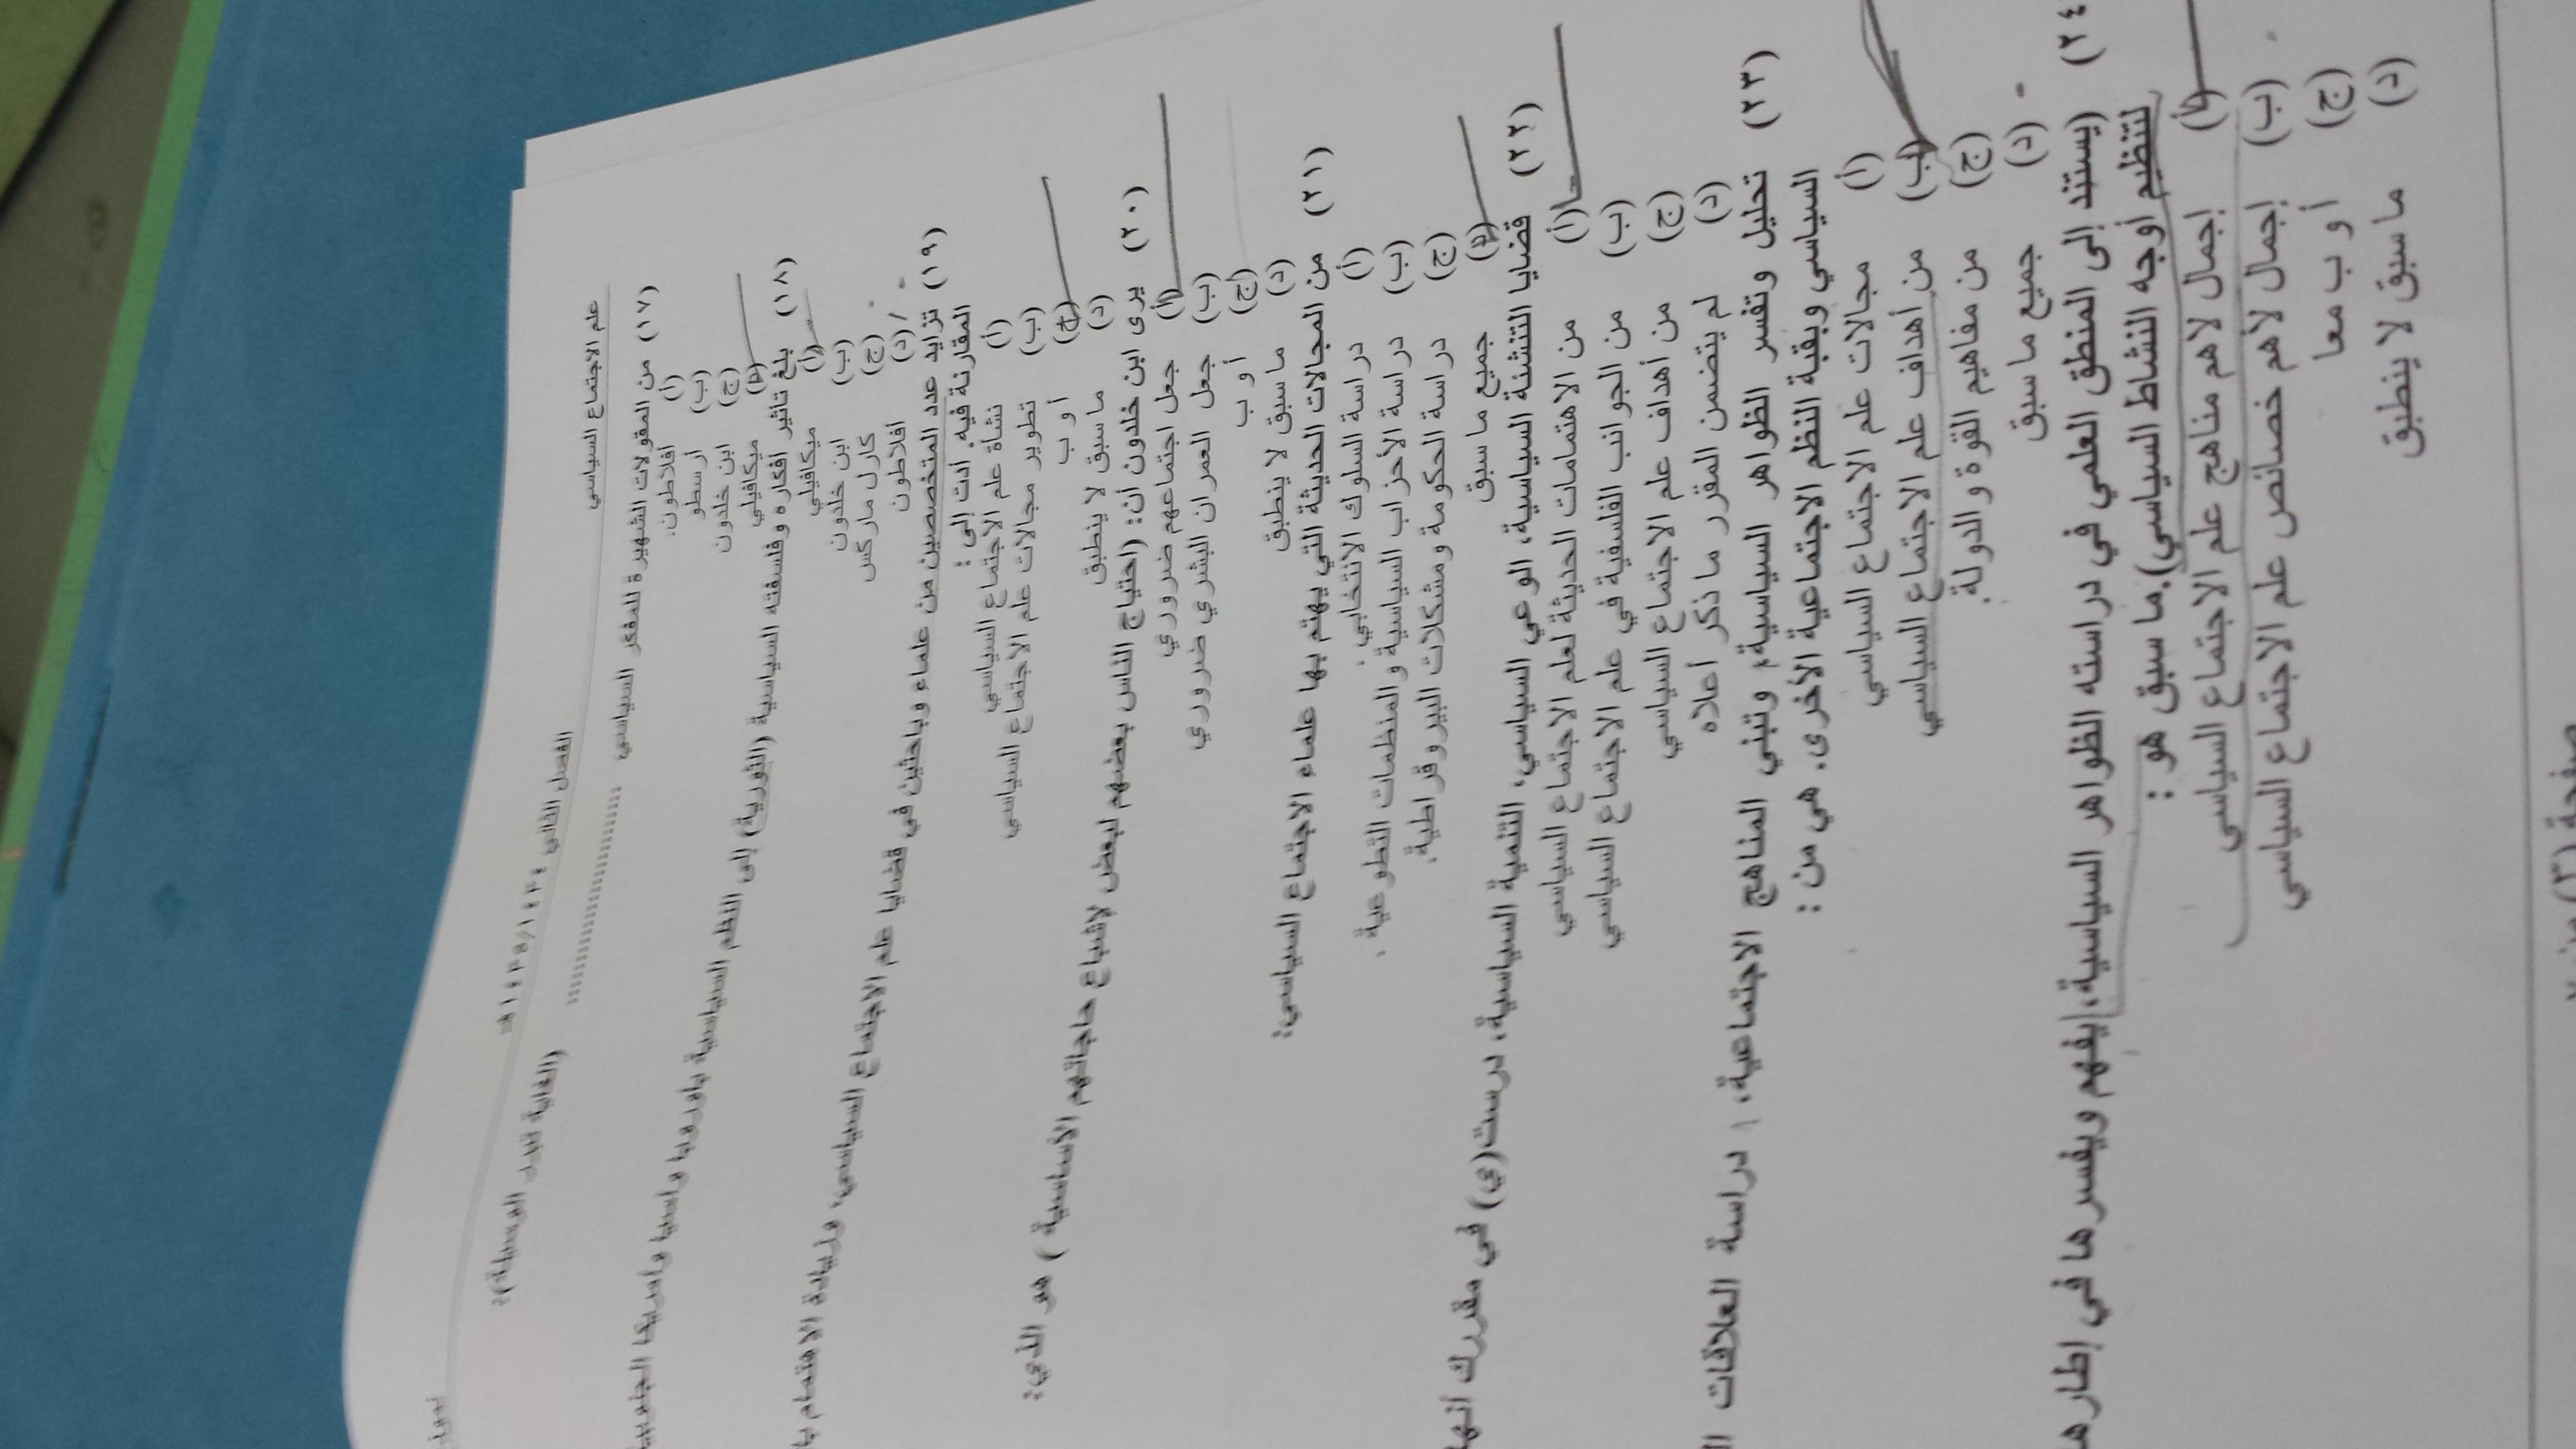 علم الاجتماع السياسي
الفصل الثاني ١٤٣٥/١٤٣٤هـ
(١٧) من المقولات الشهيرة للمفكر السياسي .................... (الغاية تبرر الوسيلة):
(أ) أفلاطون.
(ب) أرسطو
(ج) ابن خلدون
(د) ميكافيلي
(١٨) بلغ تأثير أفكاره وفلسفته السياسية (الثورية) إلى النظم السياسية بأوروبا وآسيا وأمريكا
(أ) ميكافيلي
(ب) ابن خلدون
(ج) كارل ماركس
(د) أفلاطون
(١٩) تزايد عدد المتخصصين من علماء وباحثين في قضايا علم الاجتماع السياسي، وزيادة الاهتمام
المقارنة فيه. أدت إلى :
(أ) نشأة علم الاجتماع السياسي
(ب) تطوير مجالات علم الاجتماع السياسي
(ج) أ و ب
(د) ما سبق لا ينطبق
(٢٠) يرى ابن خلدون أن: (احتياج الناس بعضهم لبعض لإشباع حاجاتهم الأساسية ) هو الذي:
(أ) جعل اجتماعهم ضروري
(ب) جعل العمران البشري ضروري
(ج) أ و ب
(د) ما سبق لا ينطبق
(٢١) من المجالات الحديثة التي يهتم بها علماء الاجتماع السياسي:
(أ) دراسة السلوك الانتخابي.
(ب) دراسة الأحزاب السياسية والمنظمات التطوعية .
(ج) دراسة الحكومة ومشكلات البيروقراطية.
(د) جميع ما سبق
(٢٢) قضايا التنشئة السياسية، الوعي السياسي، التنمية السياسية، درست(ي) في مقررك أنها
(أ) من الاهتمامات الحديثة لعلم الاجتماع السياسي
(ب) من الجوانب الفلسفية في علم الاجتماع السياسي
(ج) من أهداف علم الاجتماع السياسي
(د) لم يتضمن المقرر ما ذكر أعلاه
(٢٣) تحليل وتفسر الظواهر السياسية، وتبني المناهج الاجتماعية، دراسة العلاقات
السياسي وبقية النظم الاجتماعية الأخرى. هي من :
(أ) مجالات علم الاجتماع السياسي
(ب) من أهداف علم الاجتماع السياسي
(ج) من مفاهيم القوة والدولة.
(د) جميع ما سبق
(٢٤) (يستند إلى المنطق العلمي في دراسته الظواهر السياسية، يفهم ويفسرها في إطارها
لتنظيم أوجه النشاط السياسي). ما سبق هو :
(أ) إجمال لاهم مناهج علم الاجتماع السياسي
(ب) إجمال لأهم خصائص علم الاجتماع السياسي
(ج) أ و ب معا
(د) ما سبق لا ينطبق